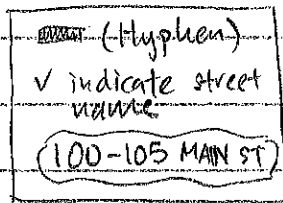 (Hyphen)
√ indicate street
name
100-105 MAIN ST